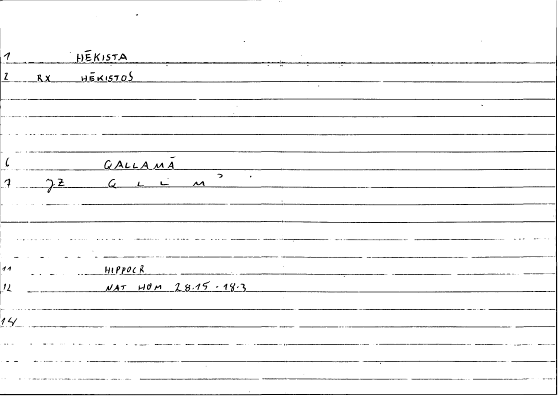 1 HĒKISTA
2 RX HĒKISTOS
6 QALLAMĀ
7 JZ Q L L M ʾ
11 HIPPOCR
12 NAT HOM 28.15 - 18.3
14